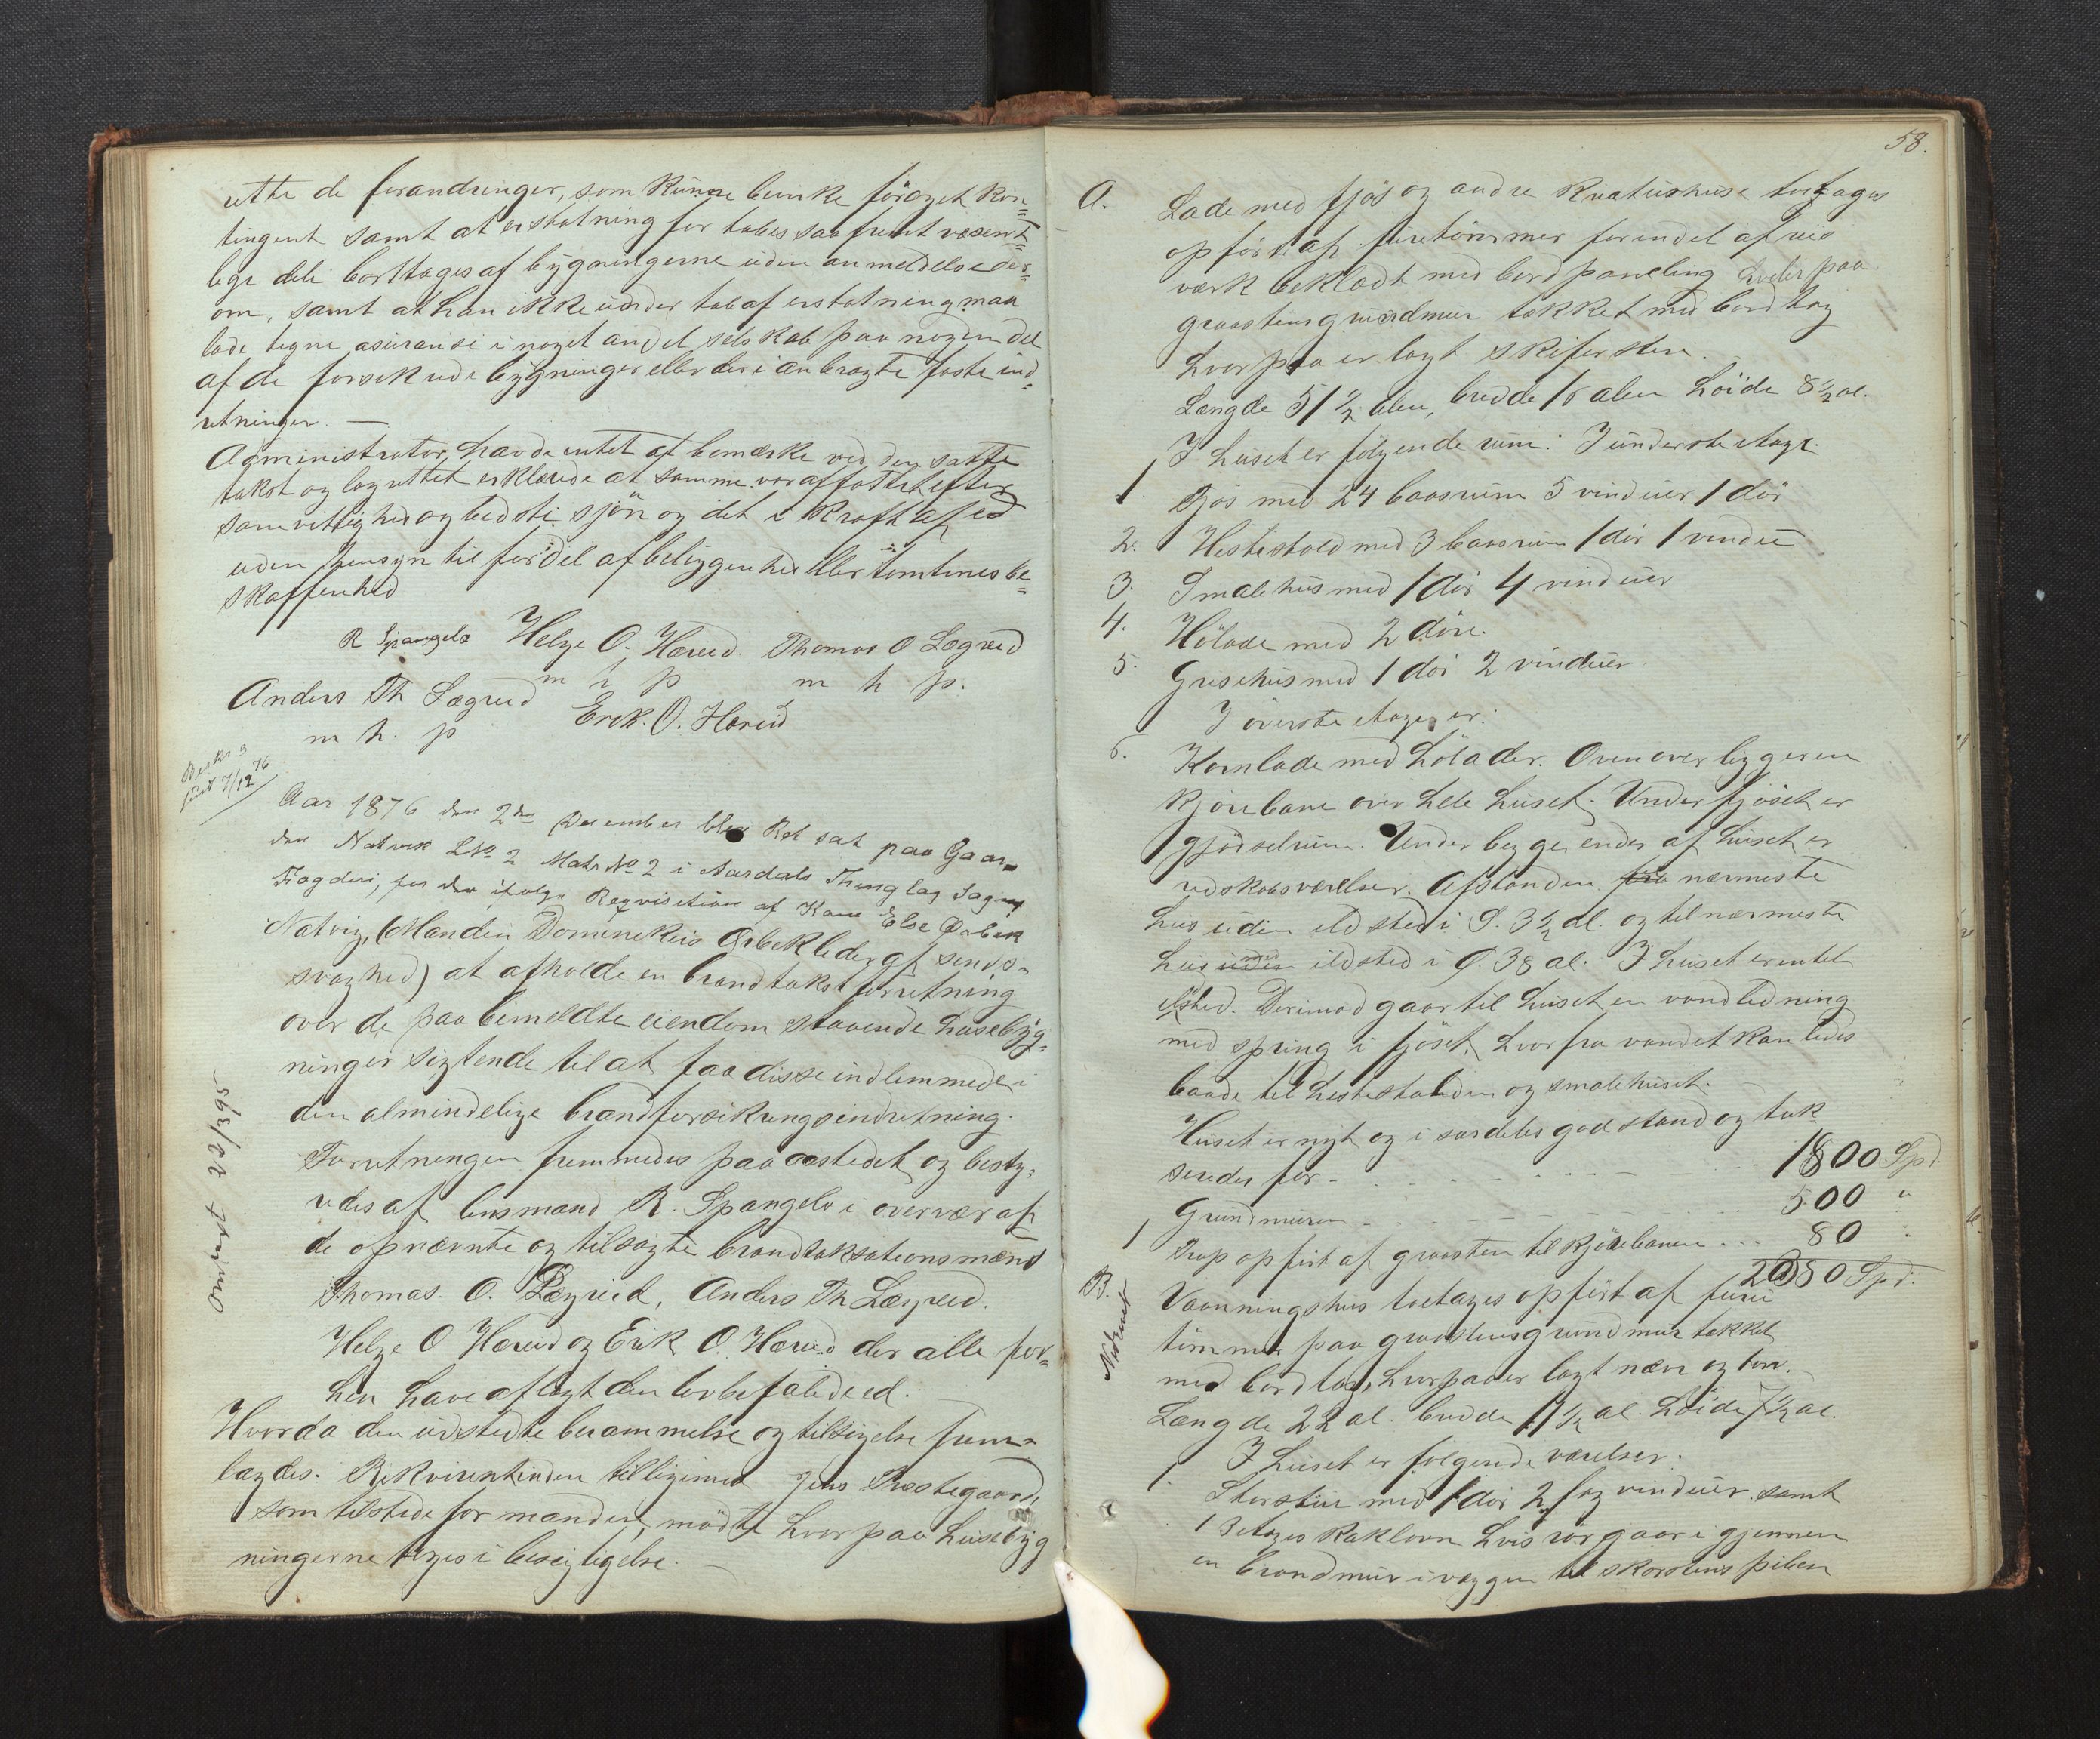 ette de forandringer, som kunne bevirke forøget kon=
tingent samt at erstatning for tabes saafremt væsent=
lige dele borttages af bygningerne uden anmeldelse der=
om, samt at han ikke under tab af erstatning maa
lade tegne assuranse i noget andet selskab paa nogen del
af de forsikrede bygninger eller deri anbragte faste ind=
retninger. —
Administrator havde intet at bemærke ved den satte
takst og lagrettet erklærede at samme var affattet efter
samvittighed og bedste sjøn og det i kraft af ed
uden hensyn til fordel af beliggenhed eller tomtenes be=
skaffenhed
R Spangelo Helge O. Hæreid. Thomas O Lægreid
m h p m h p.
Anders Th Lægreid Erik. O. Hæreid
m h. p
Beskr
sendt 7/12 76
Aar 1876 den 2den December blev Ret sat paa Gaar=
den Natvik LNo 2 Matr No 2 i Aardals Thinglag Sogns
Fogderi, for der ifølge Reqvisition af Kone Else Ørbek
Natvig, (Manden Dominekus Ørbek lider af sinds=
svaghed) at afholde en brandtakstforretning
over de paa bemeldte eiendom staaende husebyg=
ninger sigtende til at faa disse indlemmede i
den almindelige brandforsikringsindretning.
Forretningen fremmedes paa aastedet og besty=
redes af lensmand R. Spangelo i overvær af
de opnævnte og tilsagte brandtaksationsmænd
Thomas. O. Lægreid, Anders Th Lægreid.
Helge O Hæreid og Erik O. Hæreid der alle for=
hen have aflagt den lovbefalede ed.
Hvorda den udstedte berammelse og tilsigelse frem=
lagdes. Rekvirentinden tilligemed Jens Prestegaard,
som tilstede for manden, mødte hvorpaa husebyg
ningerne toges i besigtigelse. —
Omtaxt 22/3/95
58.
A. Lade med fjøs og andre kreaturhuse toetages
opført af furetømmer forendel af reis
værk beklædt med bordpaneling hviler paa
graastens grundmur tækket med bordtag
hvorpaa er lagt skifersten.
Længde 51 1/2 alen, bredde 16 alen høide 8 1/2 al.
I huset er følgende rum: I underste etage.
1. Fjøs med 24 baasrum 5 vinduer 1 dør
2. Hestestald med 3 baasrum 1 dør 1 vindue
3. Smalehus med 1 dør 4 vinduer
4. Hølade med 2 døre.
5. Grisehus med 1 dør 2 vinduer
I øverste etage er:
6. Kornlade med hølader. Ovenover ligger en
kjørebane over hele huset. Under fjøset er
gjødselrum. Under begge ender af huset er
redskabsværelser. Afstanden fra nærmeste
hus uden ildsted i S. 3 1/2 al. og til nærmeste
hus uden med ildsted i S. 38 al. I huset er intet
ildsted. Derimod gaar til huset en vandledning
med spring i fjøset, hvorfra vandet kan ledes
baade til hestestalden og smalehuset.
Huset er nyt og i særdeles god stand og tak
seredes for - - - - - - 1800 Spd.
Grundmuren - - - - - - 500 "
1 Trap opført af graasten til kjørebanen ... 80 "
2080 Spd.
B. Vaaningshus toetages opført af furu
Nedrevet
tømmer paa graastensgrundmur tækket
med bordtag, hvorpaa er lagt næver og torv.
Længde 22 al. bredde 11 1/2 al. høide 7 1/2 al.
I huset er følgende værelser:
1. Storstue med 1 dør 2 fag vinduer samt
1 3 etages kakkelovn hvis rør gaar igjennem
en brandmur i væggen til skorstens piben